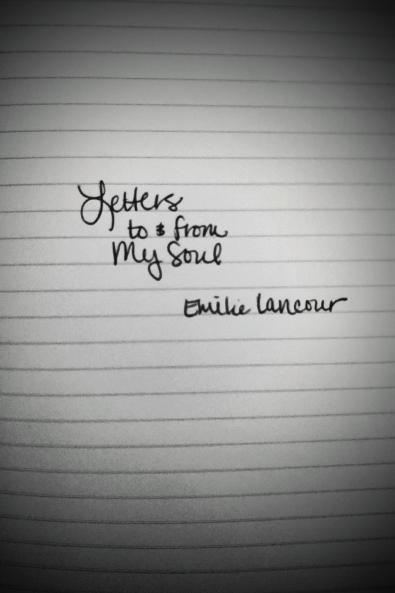 Letters
to & from
My Soul
Emilie Lancour